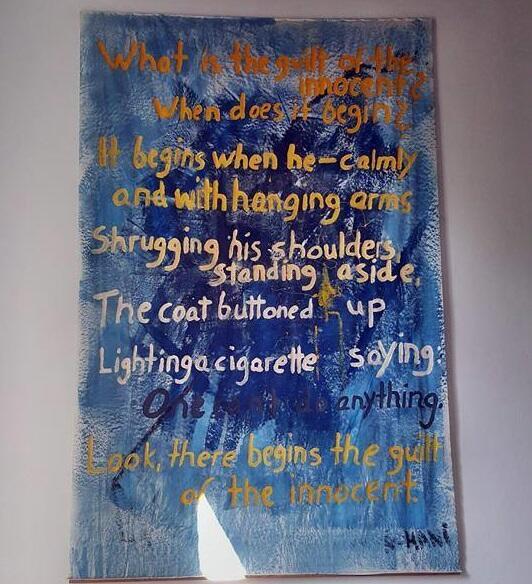 What is the guilt of the
innocent?
When does it begin?
It begins when he-calmly
and with hanging arms
Shrugging his shoulders,
standing aside,
The coat buttoned up
Lighting a cigarette saying:
One can't do anything.
Look, there begins the guilt
of the innocent.